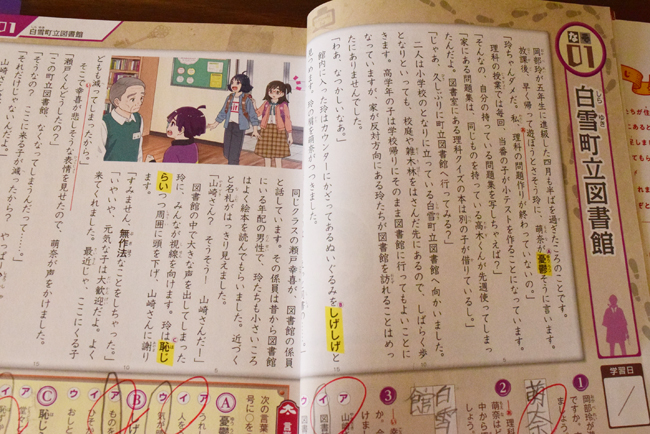 なぞ
01
白雪町立図書館
しら ゆき
学習日
岡部玲が五年生に進級した四月も半ばを過ぎたころのことです。
放課後、早く帰って遊ぼうとさそう玲に、萌奈が憂鬱そうに言います。
「玲ちゃんダメだ。私、理科の問題作りが終わっていないの。」
理科の授業では毎回、当番の子が小テストを作ることになっています。
「そんなの、自分の持っている問題集を写しちゃえば?」
「家にある問題集は、同じものを持っている高木くんが先週使ってしまっ
たんだよ。図書室にある理科クイズの本は別の子が借りているし。」
「じゃあ、久しぶりに町立図書館へ行ってみる?」
二人は小学校のとなりに立っている白雪町立図書館へ向かいました。
となりといっても、校庭や雑木林をはさんだ先にあるので、しばらく歩
きます。高学年の子は学校帰りにそのまま図書館に行ってもよいことに
なっていますが、家が反対方向にある玲たちが図書館を訪れることはめっ
たにありませんでした。
「わあ、なつかしいなあ。」
館内に入った玲はカウンターにかざってあるぬいぐるみをしげしげと
見つめます。玲の肩を萌奈がつつきました。
01
白雪町立図書館
同じクラスの瀬戸幸喜が、図書館の係員
と話しています。その係員は昔から図書館
にいる年配の男性で、玲たちも小さいころ
はよく絵本を読んでもらいました。近づく
と名札がはっきり見えました。
「山崎さんだ。そうそう! 山崎さんだー!」
図書館の中で大きな声を出してしまった
玲に、みんなが視線を向けます。玲は恥じ
らいつつ周囲に頭を下げ、山崎さんに謝り
ます。
「すみません、無作法なことをしちゃった。」
「いやいや、元気な子は大歓迎だよ。よく
来てくれました。最近じゃ、ここにくる子
ども減ってしまったから。」
そこで幸喜が悲しそうな表情を見せたので、萌奈が声をかけました。
「瀬戸くんどうしたの?」
「この町立図書館、なくなってしまうんだって……。」
「そうなの? ここに来る子が減ったから?
「それだけじゃないんだよ。」
1
岡部玲が
ですか。
2
理科
萌奈
3
白雪
館
次の言葉の
号に○を
A
憂鬱
B
C
恥じ
ア
イ
ウ